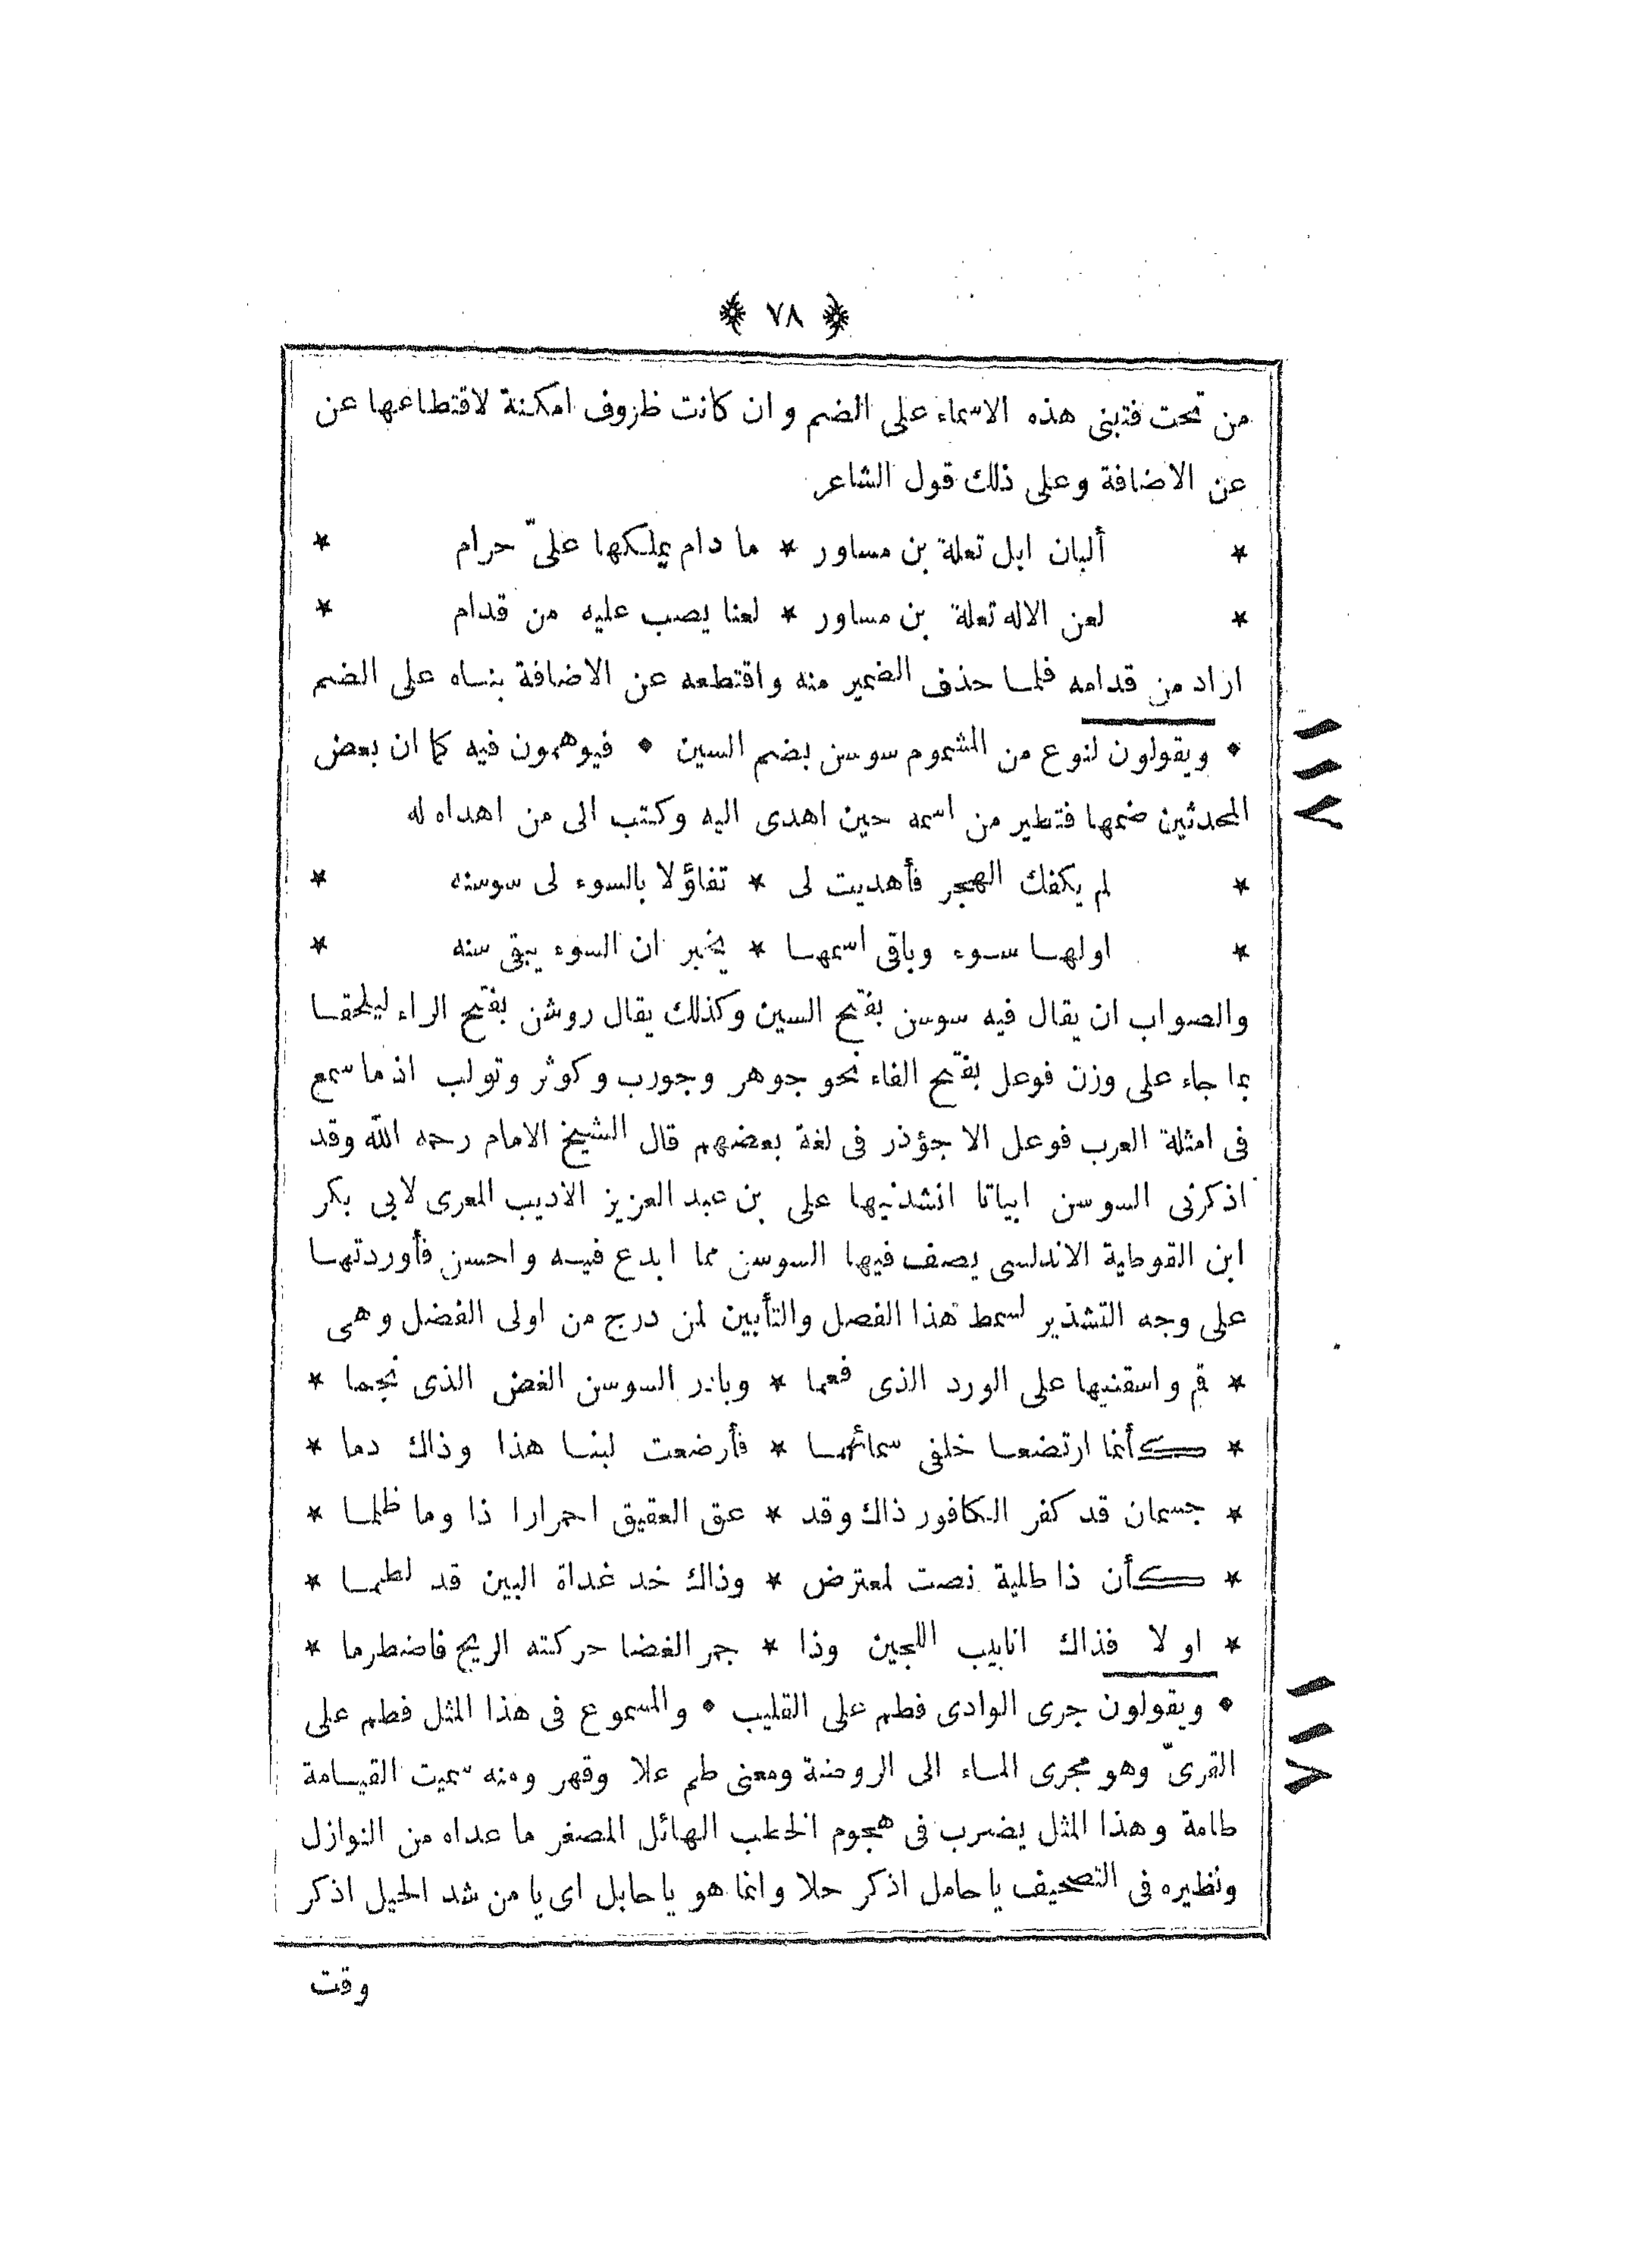 ﴿ ٧٨ ﴾
من تحت فتبنى هذه الاسماء على الضم وان كانت ظروف امكنة لاقتطاعها عن
عن الاضافة وعلى ذلك قول الشاعر
* ألبان ابل تعلة بن مساور * ما دام يملكها علىّ حرام *
* لعن الاله تعلة بن مساور * لعنا يصب عليه من قدام *
اراد من قدامه فلما حذف الضمير منه واقتطعه عن الاضافة بناه على الضم
١١٧
• ويقولون لنوع من المشموم سوسن بضم السين • فيوهمون فيه كما ان بعض
المحدثين ضمها فتطير من اسمه حين اهدى اليه وكتب الى من اهداه له
* لم يكفك الهجر فأهديت لى * تفاؤلا بالسوء لى سوسنه *
* اولها سوء وباقى اسمها * يخبر ان السوء يبقى سنه *
والصواب ان يقال فيه سوسن بفتح السين وكذلك يقال روشن بفتح الراء ليلحقا
بما جاء على وزن فوعل بفتح الفاء نحو جوهر وجورب وكوثر وتولب اذ ما سمع
فى امثلة العرب فوعل الا جؤذر فى لغة بعضهم قال الشيخ الامام رحمه الله وقد
اذكرنى السوسن ابياتا انشدنيها على بن عبد العزيز الاديب المعرى لابى بكر
ابن القوطية الاندلسى يصف فيها السوسن مما ابدع فيه واحسن فأوردتها
على وجه التشذير لسمط هذا الفصل والتأبين لمن درج من اولى الفضل وهى
* قم واسقنيها على الورد الذى فعما * وبادر السوسن الغض الذى نجما *
* كأنما ارتضعا خلفى سمائهما * فأرضعت لبنا هذا وذاك دما *
* جسمان قد كفر الكافور ذاك وقد * عق العقيق احمرارا ذا وما ظلما *
* كأن ذا طلية نصت لمعترض * وذاك خد غداة البين قد لطما *
* او لا فذاك انابيب اللجين وذا * جمر الغضا حركته الريح فاضطرما *
١١٨
• ويقولون جرى الوادى فطم على القليب • والمسموع فى هذا المثل فطم على
القرىّ وهو مجرى الماء الى الروضة ومعنى طم علا وقهر ومنه سميت القيامة
طامة وهذا المثل يضرب فى هجوم الخطب الهائل المصغر ما عداه من النوازل
ونظيره فى التصحيف يا حامل اذكر حلا وانما هو يا حابل اى يا من شد الحيل اذكر
وقت